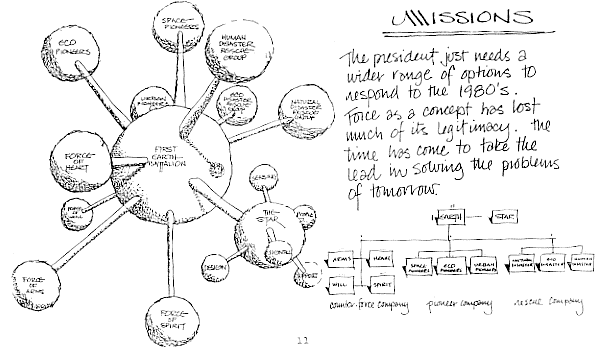 MISSIONS
The president just needs a
wider range of options to
respond to the 1980's.
Force as a concept has lost
much of its legitimacy. The
time has come to take the
lead in solving the problems
of tomorrow.
SPACE
PIONEERS
ECO
PIONEERS
HUMAN
DISASTER
RESCUE
GROUP
URBAN
PIONEERS
ECO
DISASTER
RESCUE
GROUP
NATURAL
DISASTER
RESCUE
GROUP
FORCE
OF
HEART
FIRST
EARTH
BATTALION
FORCE
OF WILL
THE
STAR
FORCE
OF
ARMS
FORCE
OF
SPIRIT
DESIGN
SUPPORT
EARTH
STAR
ARMS
HEART
WILL
SPIRIT
SPACE
PIONEERS
ECO
PIONEERS
URBAN
PIONEERS
NATURAL
DISASTER
ECO
DISASTER
HUMAN
DISASTER
counter-force company
pioneer company
rescue company